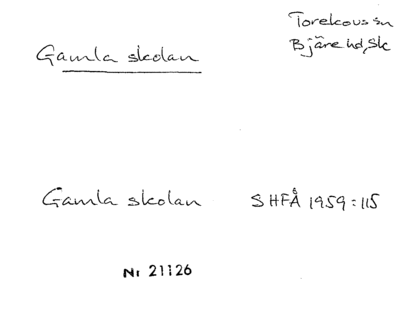 Torekovs sn
Bjäre hd, Sk
Gamla skolan
Gamla skolan SHFÅ 1959:115
Nr 21126